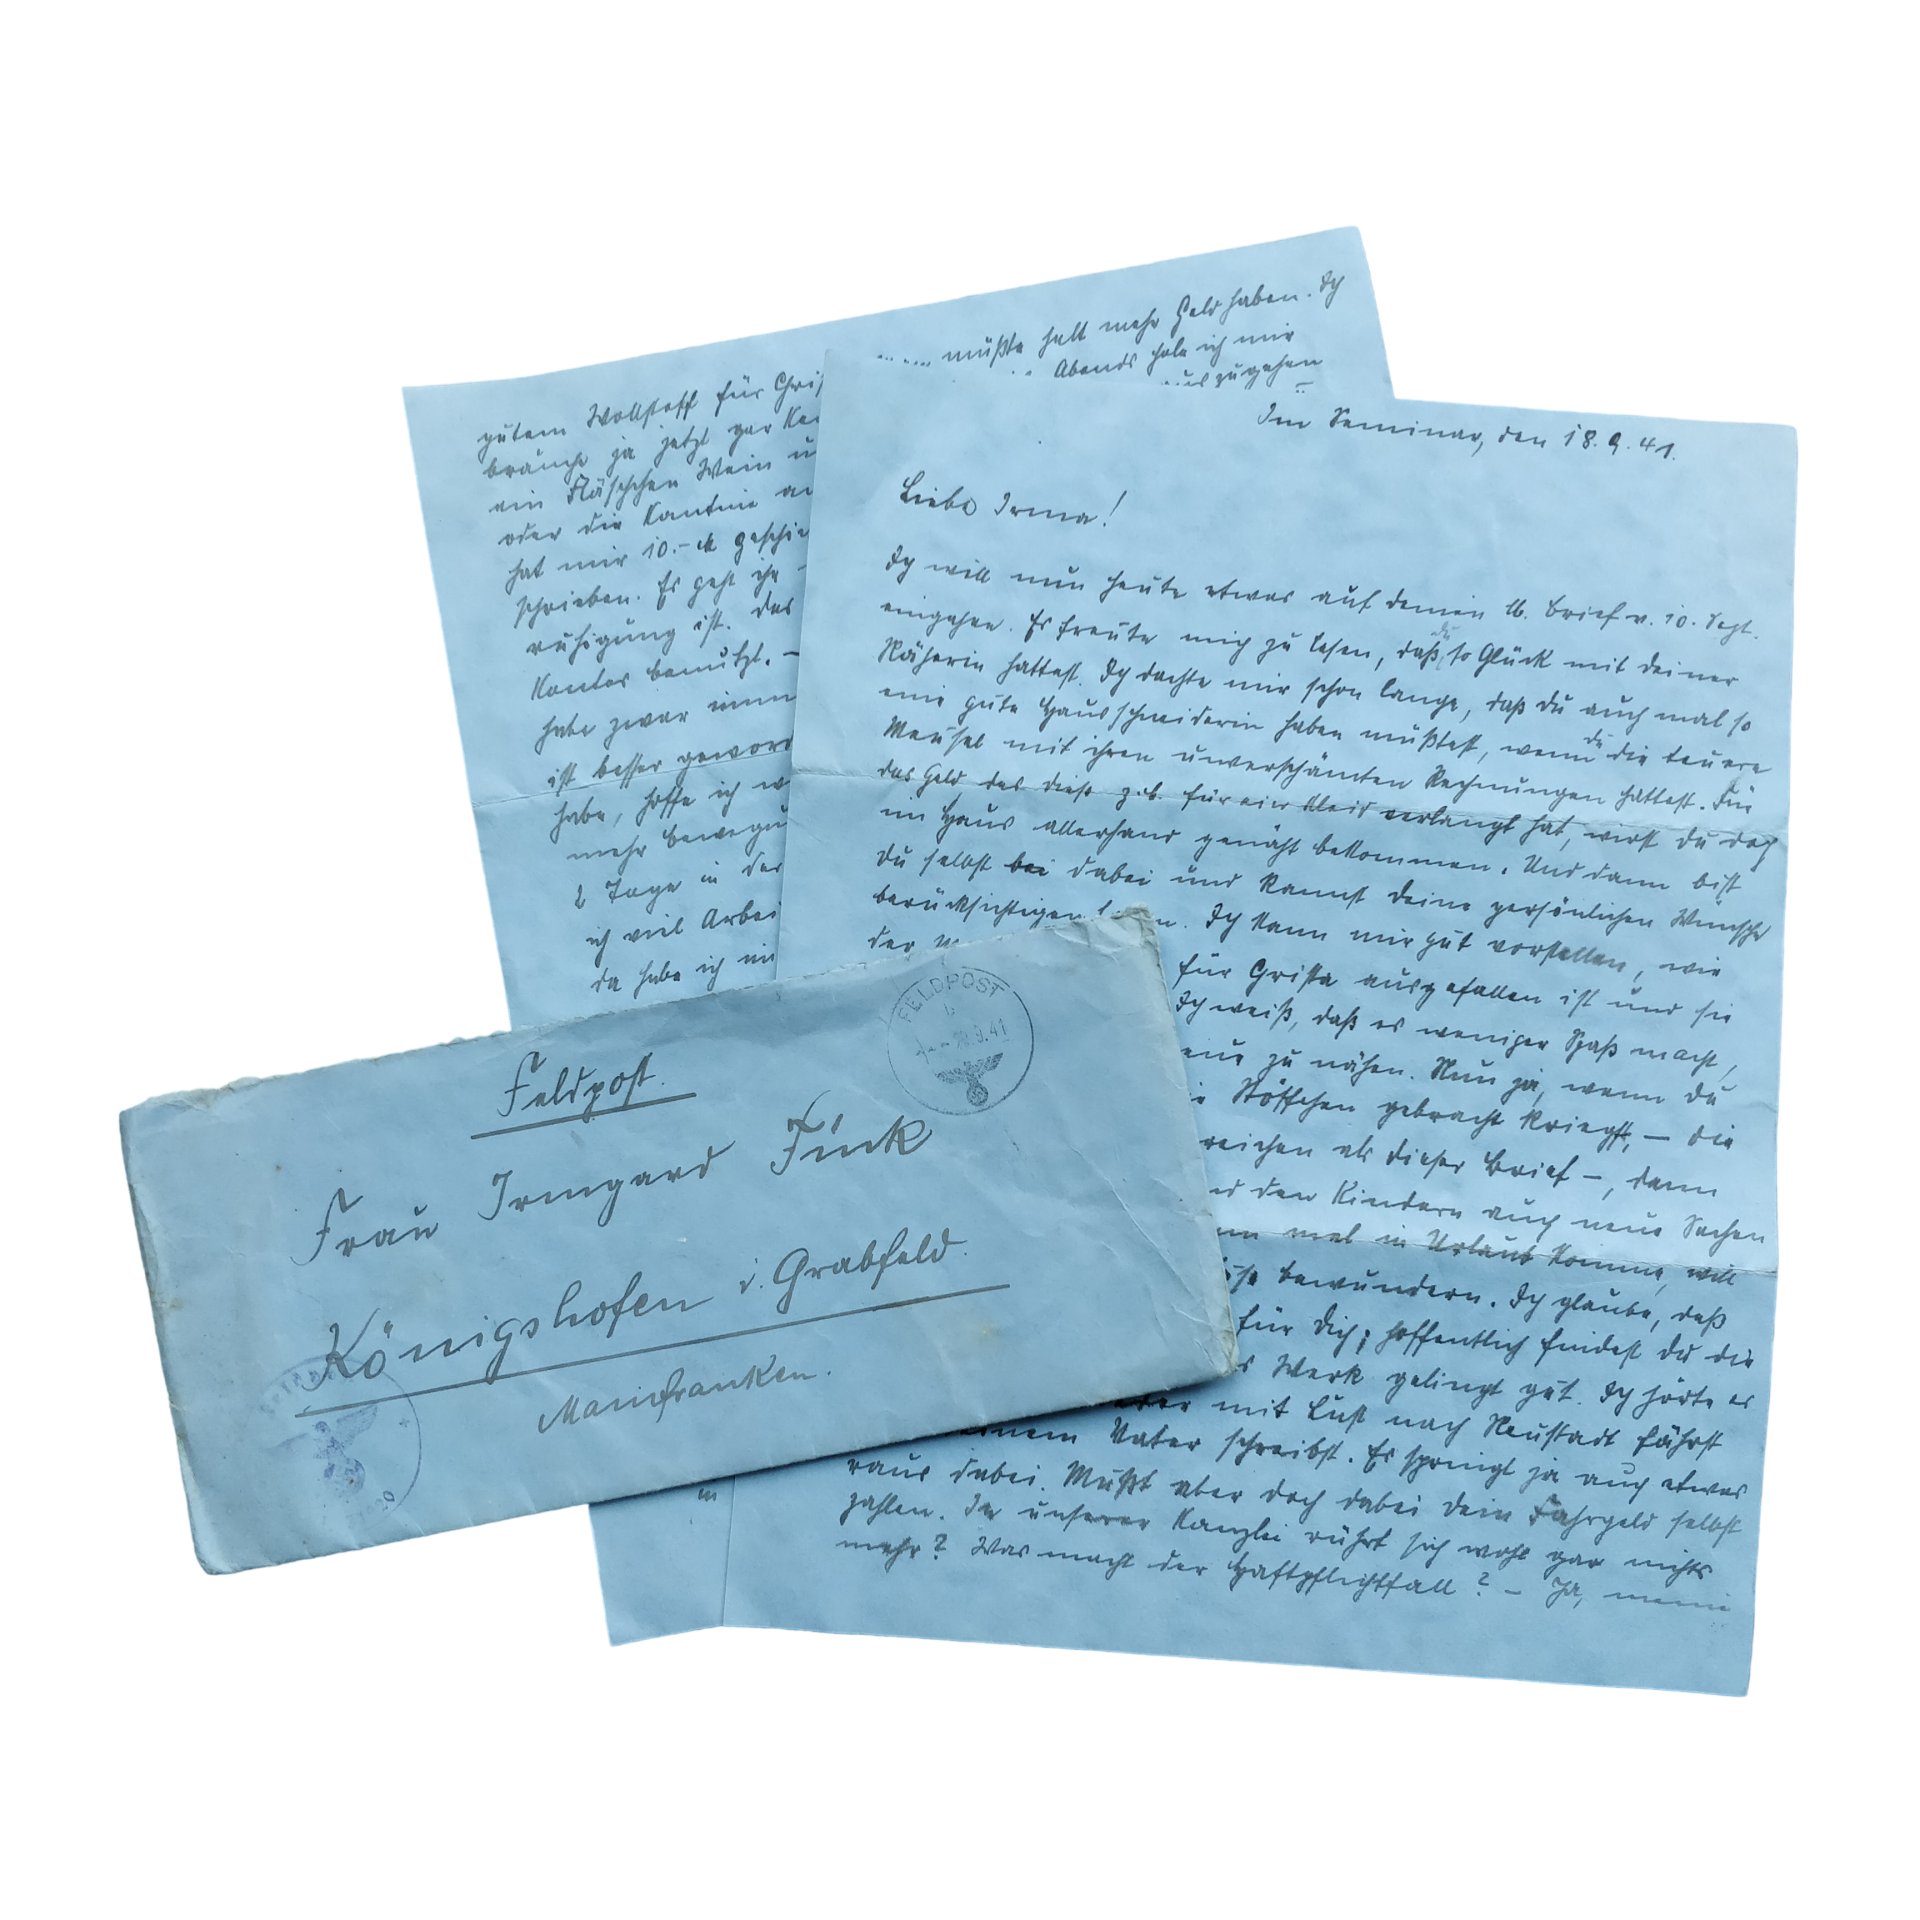 gutem Wollstoff für
müßte halt mehr Geld haben. Ich
brauche ja jetzt gar
Abends hole ich mir
ein Fläschchen Wein
auszugehen
oder die Kantine
hat mir 10.-
schrieben. Es geht ihr
ruhigung ist. Das
benutzt. –
habe zwar
ist besser
habe, hoffe ich
mehr
2 Tage in der
ich viel
da habe ich
in
Im Seminar, den 18.9.41.
Liebe Irma!
Ich will nun heute etwas auf deinen lb. Brief v. 10. Sept.
eingehen. Es freute mich zu lesen, daß du so Glück mit deiner
Näherin hattest. Ich dachte mir schon lange, daß du auch mal so
eine gute Hausschneiderin haben müßtest, wenn du die teuere
Meusel mit ihren unverschämten Rechnungen hattest. Für
das Geld das diese z.b. für ein Kleid verlangt hat, wirst du doch
im Haus allerhand genäht bekommen. Und dann bist
du selbst bei dabei und kannst deine persönlichen Wünsche
berücksichtigen Ich kann mir gut vorstellen, wie
der für Grista ausgefallen ist und sie
Ich weiß, daß es weniger Spaß macht,
zu nähen. Nun ja, wenn du
Stöffchen gebracht kriegst, – die
als dieser Brief –, dann
den Kindern auch neue Sachen
mal in Urlaub komme, will
bewundern. Ich glaube, daß
für dich; hoffentlich findest du die
Werk gelingt gut. Ich hörte es
mit Lust nach Neustadt fährst
Vater schreibst. Es springt ja auch etwas
raus dabei. Mußt aber doch dabei dein Fahrgeld selbst
zahlen. In unserer Kanzlei rührt sich wohl gar nichts
mehr? Was macht der Haftpflichtfall? – Ja, meine
FELDPOST
9.41
Feldpost.
Frau Irmgard Fink
Königshofen i. Grabfeld.
Mainfranken.